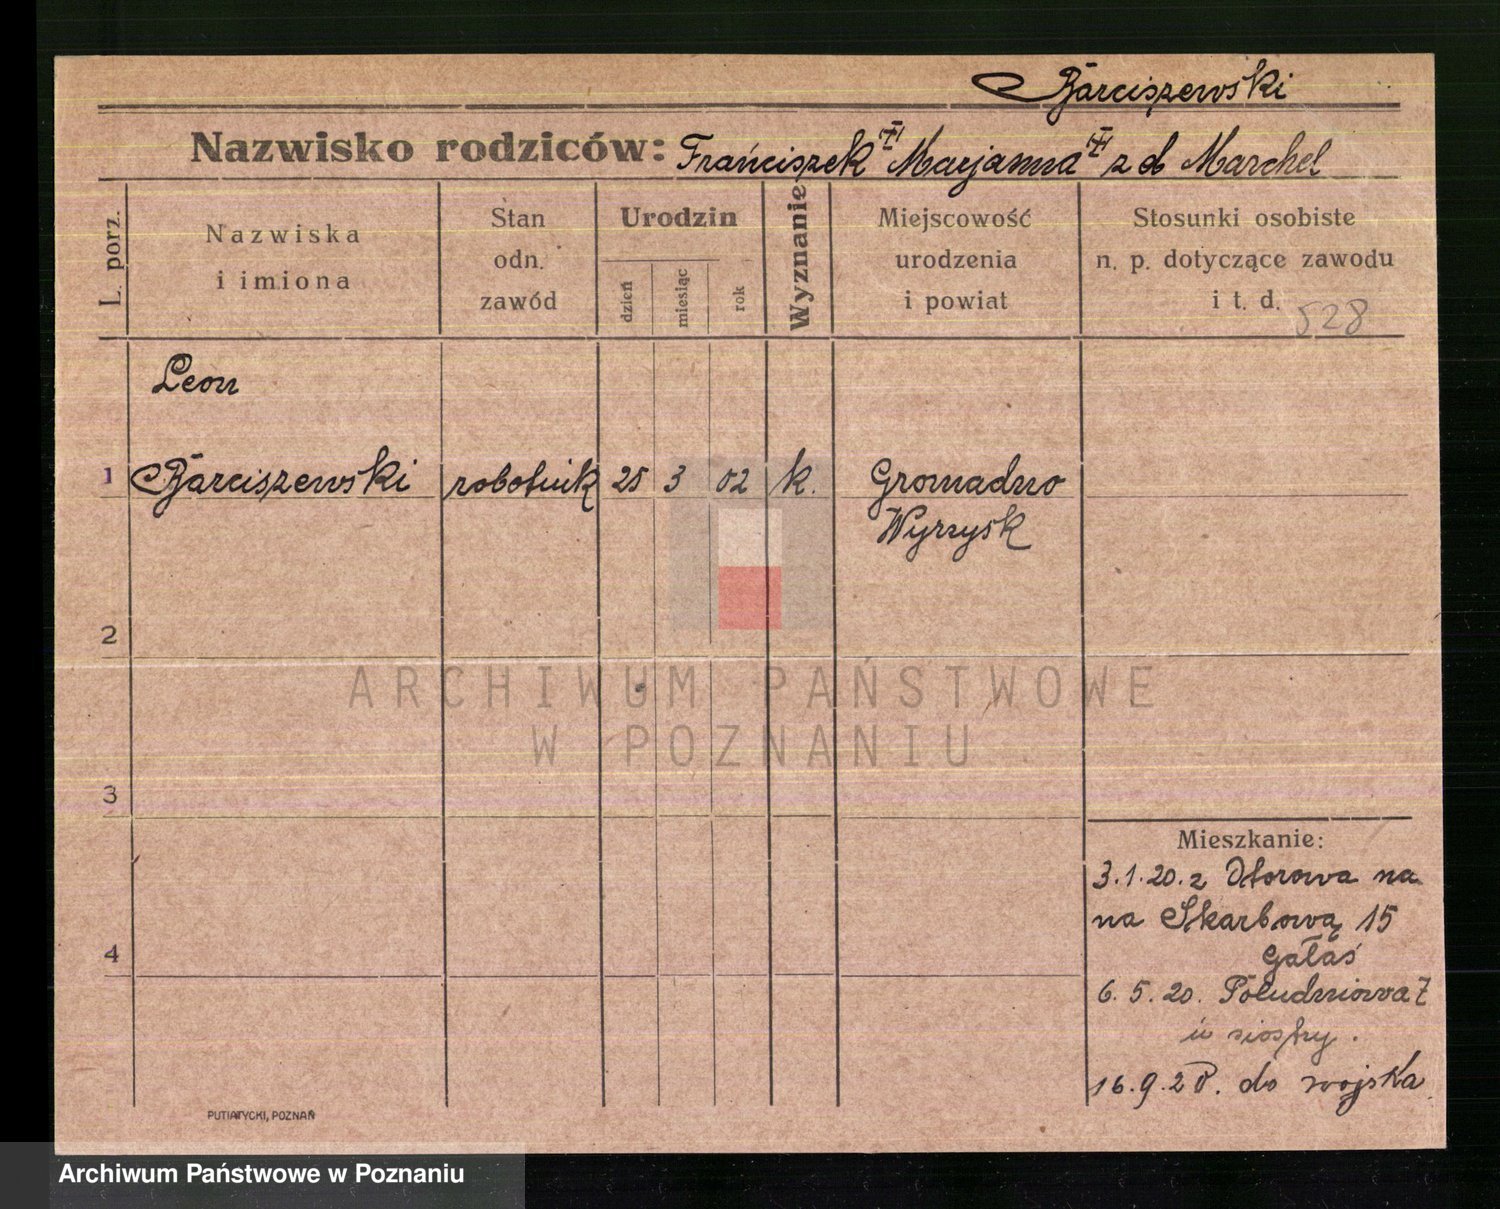 Barciszewski
Nazwisko rodziców: Franciszek Marjanna z d Marchel
L. porz.
Nazwiska
i imiona
Stan
odn.
zawód
Urodzin
dzień
miesiąc
rok
Wyznanie
Miejscowość
urodzenia
i powiat
Stosunki osobiste
n. p. dotyczące zawodu
i t. d.
528
Leon
1 Barciszewski robotnik 25 3 02 k. Gromadno
Wyrzysk
2
ARCHIWUM PAŃSTWOWE
W POZNANIU
3
4
Mieszkanie:
3.1.20. z na
na Skarbową 15
Gałaś
6. 5. 20. Południowa 7
u siostry.
16.9.20. do wojska
PUTIATYCKI, POZNAŃ
Archiwum Państwowe w Poznaniu